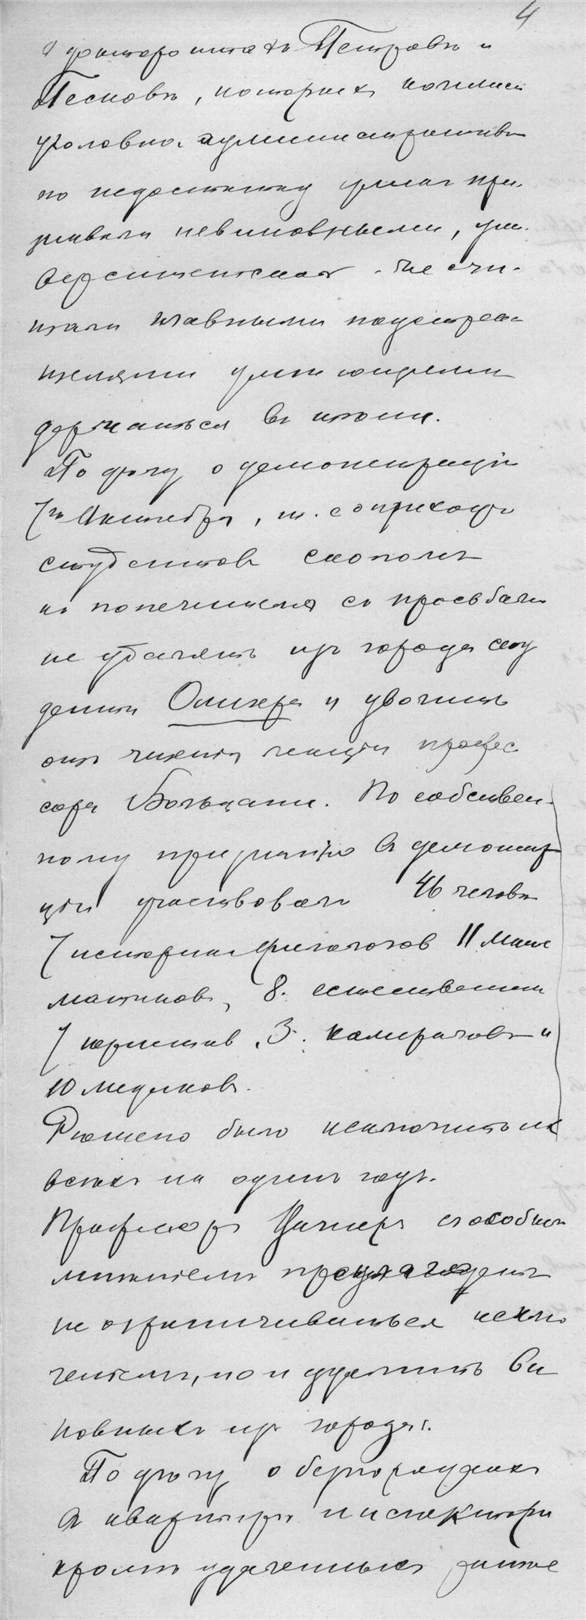 4
Петровъ и
Песковъ, которыхъ
уголовно. административ
по недостатку улик при.
знавали невиновными, уни.
верситетская . не счи.
тали главными подстрека
телями
держаться въ
По делу о демонстрации
7го Октября, т. е о приходе
студентов скопом
къ попечителю съ просьбами
не удалять изъ города сту
дента Олихера и уволить
отъ чтения лекции профес
сора Больцани. По собствен.
ному признанию в демонстра
ции участвовали 46 человек
7 историко филологов 11 мате
матиков, 8. естественник
7 юристов, 3. камералов и
10 медиков.
Решено было исключить их
всехъ на один годъ.
Профессоръ Вагнеръ с особым
мнением
не ограничиваться исклю
чением, но и удалить ви
новныхъ изъ города.
По делу о беспорядках
в квартире инспектора
кроме удаленных